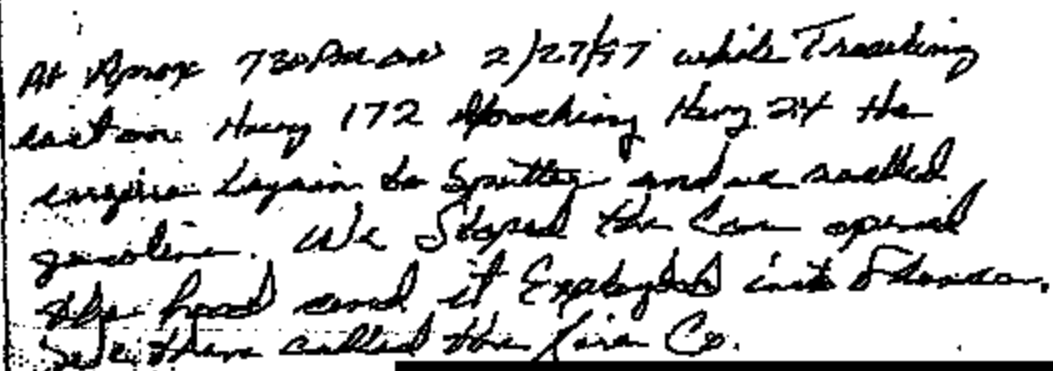 At Aprox 730 PM on 2/27/97 while Traveling
east on Hwy 172 Aproching Hwy 24 the
engine began to Sputter and we smelled
gasoline. We Stoped the Car opened
the hood and it Exploded into flames.
We then called the Fire Co.